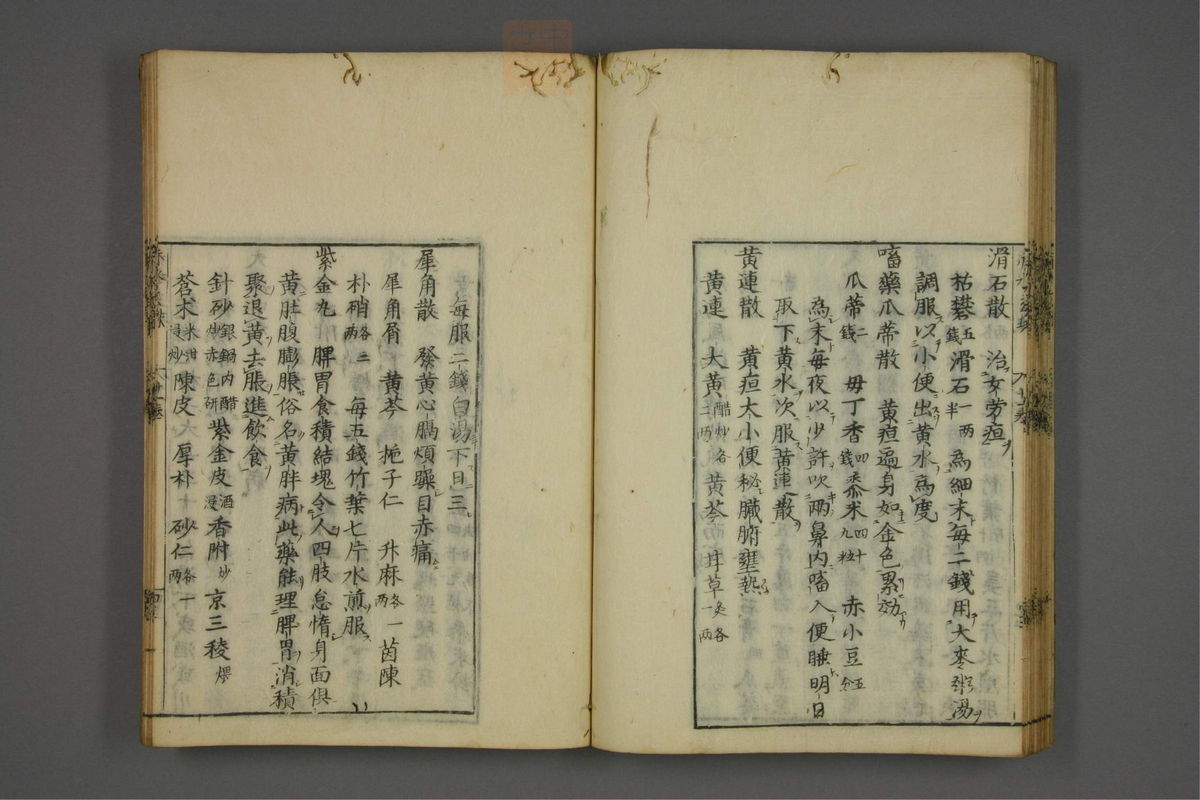 滑石散 治女労疸
枯礬五錢滑石一兩半為細末每二錢用大麥粥湯
調服以小便出黃水為度
㗜藥瓜蒂散 黃疸遍身如金色累効
瓜蒂二錢 母丁香四錢黍米四十九粒 赤小豆五分
為末每夜以少許吹兩鼻内㗜入便睡明日
取下黃水次服黃連散
黃連散 黃疸大小便秘臟腑壅熱
黃連 大黃醋炒各二兩黃芩 甘草炙各一兩
每服二錢白湯下日三
犀角散 發黃心膈煩躁目赤痛
犀角屑 黃芩 梔子仁 升麻各一兩茵陳
朴硝各二兩 每五錢竹葉七片水煎服
紫金丸 脾胃食積結塊令人四肢怠惰身面俱
黃肚腹膨脹俗名黃胖病此藥能理脾胃消積
聚退黃去脹進飲食
針砂銀鍋内醋炒赤色研紫金皮酒浸香附炒京三稜煨
蒼朮米泔浸炒陳皮 厚朴 砂仁各一兩